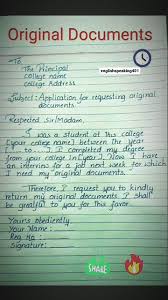 Original Documents
To,
The Principal
college name
college Address
englishspeaking401
Subject: Application for requesting original
documents.
Respected Sir/Madam,
I was a student at this college
[your college name] between the year
... to ... I completed my degree
from your college in [year]. Now I have
an interview for a job next week for which
I need my original documents.
Therefore I request you to kindly
return my original documents I shall
be grateful to you for this favor.
Yours obediently
Your Name:
Reg. No:
Signature:
SHARE